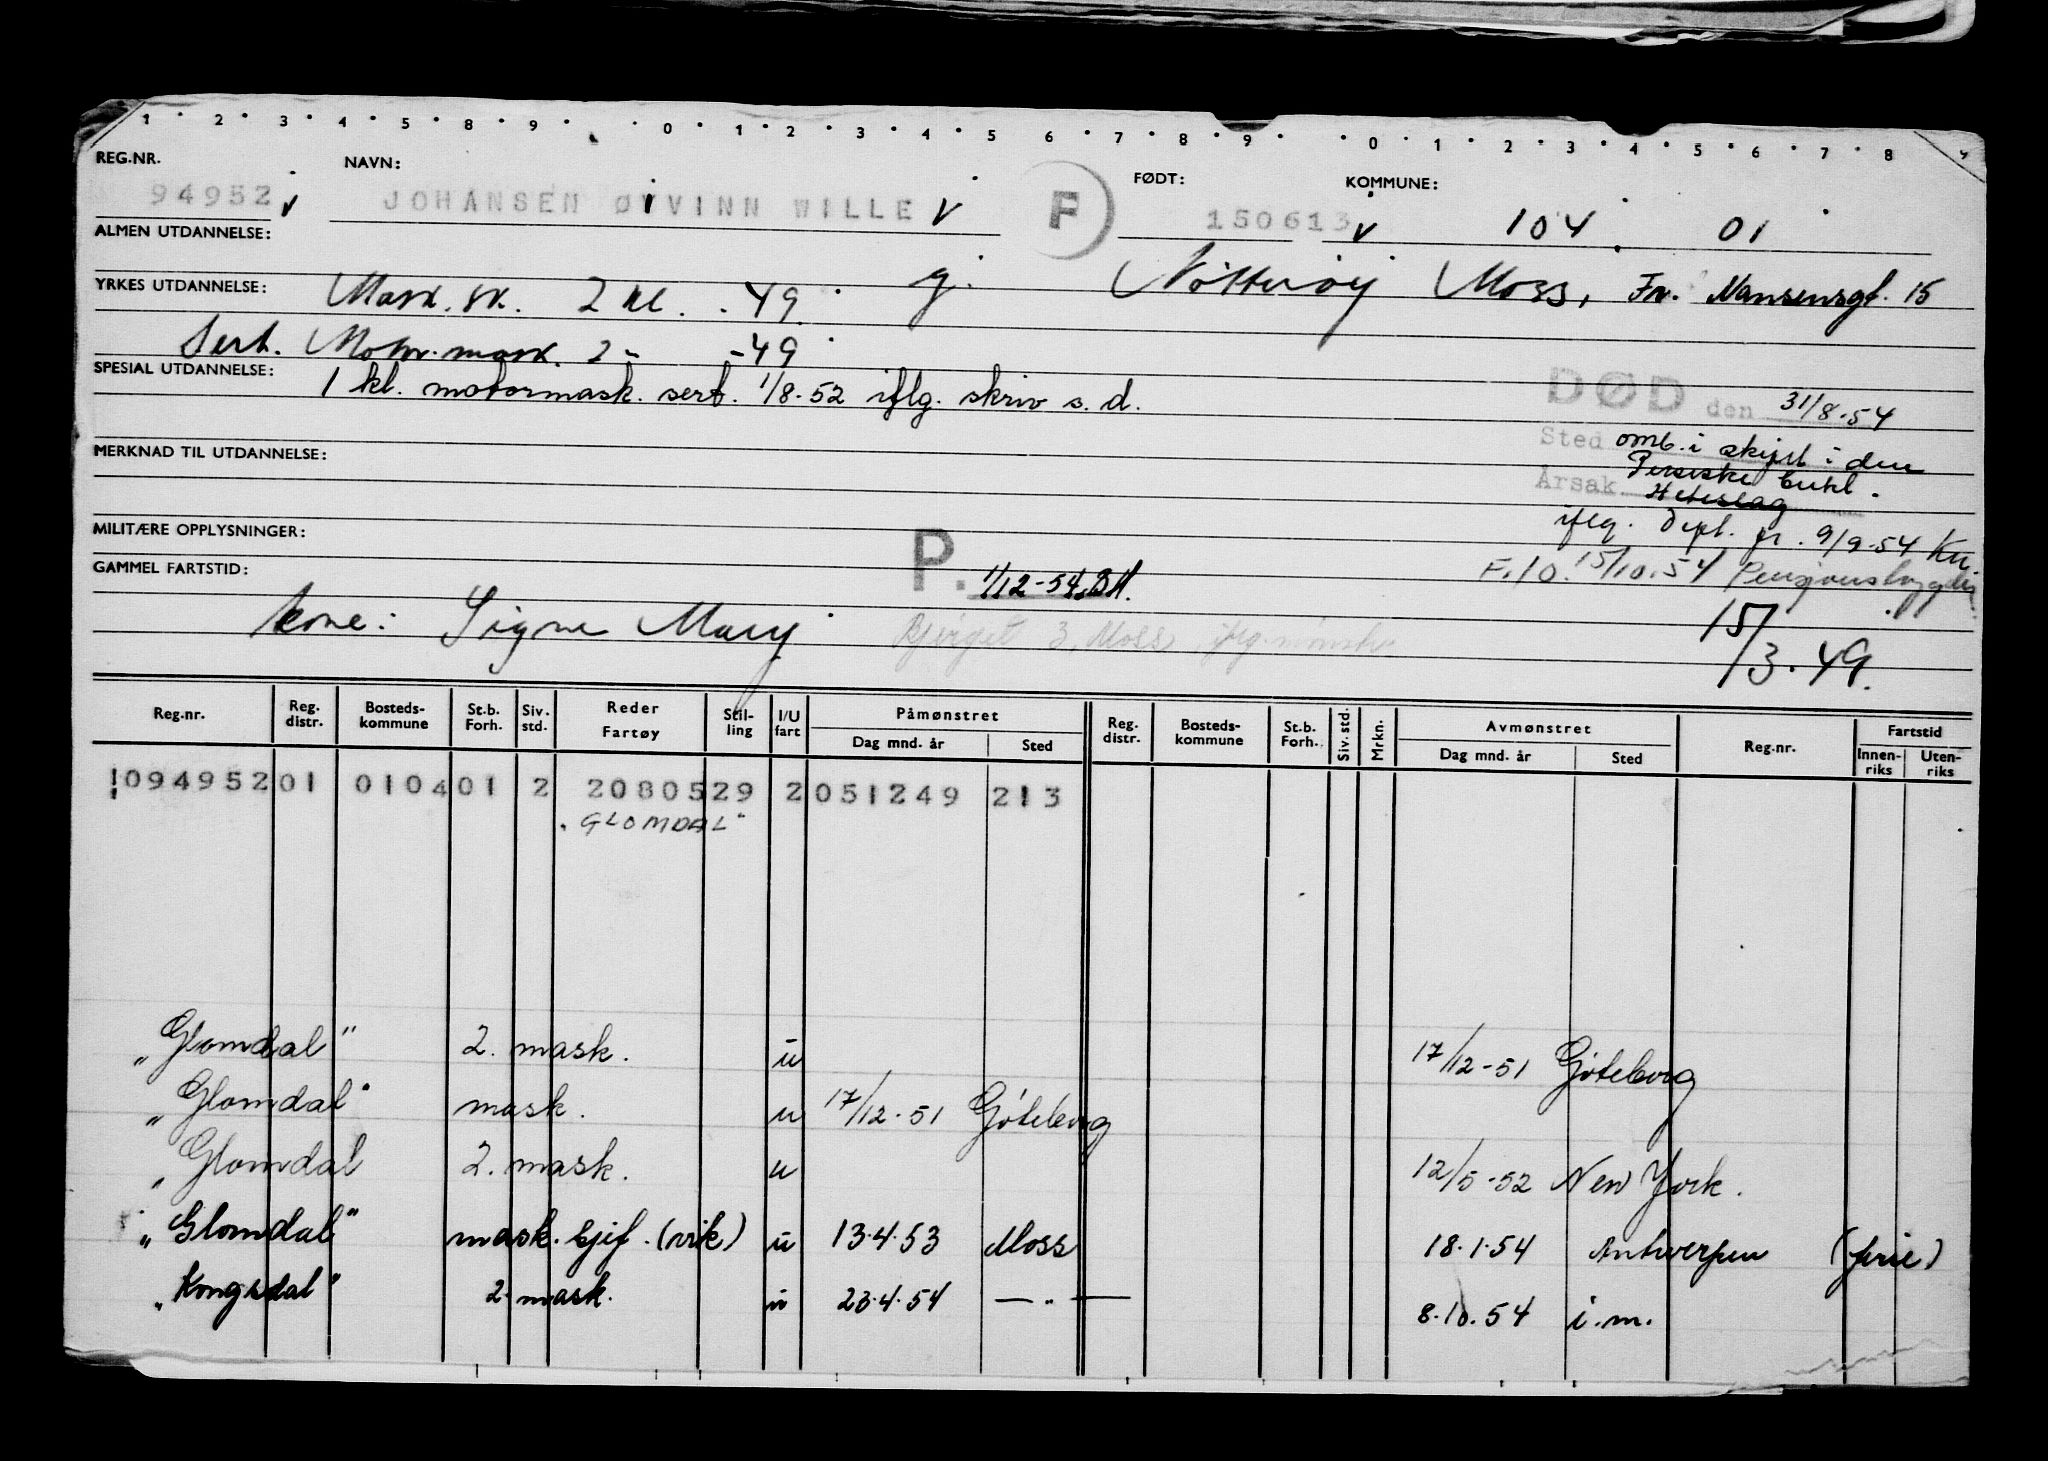 1 2 3 4 5 8 9 0 1 2 3 4 5 6 7 8 9 0 1 2 3 4 5 6 7 8
REG.NR. NAVN: FØDT: KOMMUNE:
94952 JOHANSEN ØIVINN WILLE F 150613 104 01
ALMEN UTDANNELSE:
g. Nøtterøy Moss, Fr. Nansensgt. 15
YRKES UTDANNELSE: Mask. sk. 2 kl. - 49
Sert. Motor. mask. 2 - - 49
SPESIAL UTDANNELSE: 1 kl. motormask. sert. 1/8-52 iflg. skriv s.d.
DØD den 31/8-54
Sted omb. i skipet i den
Persiske bukt.
MERKNAD TIL UTDANNELSE:
Årsak Heteslag
iflg. dept. fr. 9/9-54
MILITÆRE OPPLYSNINGER:
P. 1/12-54. BH.
F.10. 15/10.54 Pensjonstrygden
GAMMEL FARTSTID:
kone: Signe Mary
Bjerget 3, Moss iflg. mønstr.
15/3.49.
Reg.nr. Reg. distr. Bosteds-kommune St.b. Forh. Siv. std. Reder Fartøy Stil-ling I/U fart Påmønstret Dag mnd. år Sted Reg. distr. Bosteds-kommune St.b. Forh. Siv. std. Mrkn. Avmønstret Dag mnd. år Sted Reg.nr. Fartstid Innen-riks Uten-riks
094952 01 0104 01 2 2080529 2 051249 213
"GLOMDAL"
"Glomdal" 2. mask. u 17/12-51 Göteborg
"Glomdal" mask. u 17/12-51 Göteborg
"Glomdal 2. mask. u 12/5-52 New York.
"Glomdal" mask. sjef. (vik) u 13.4.53 Moss 18.1.54 Antwerpen (ferie)
"Kongsdal" 2. mask. u 23.4.54 — " — 8.10.54 i.m.